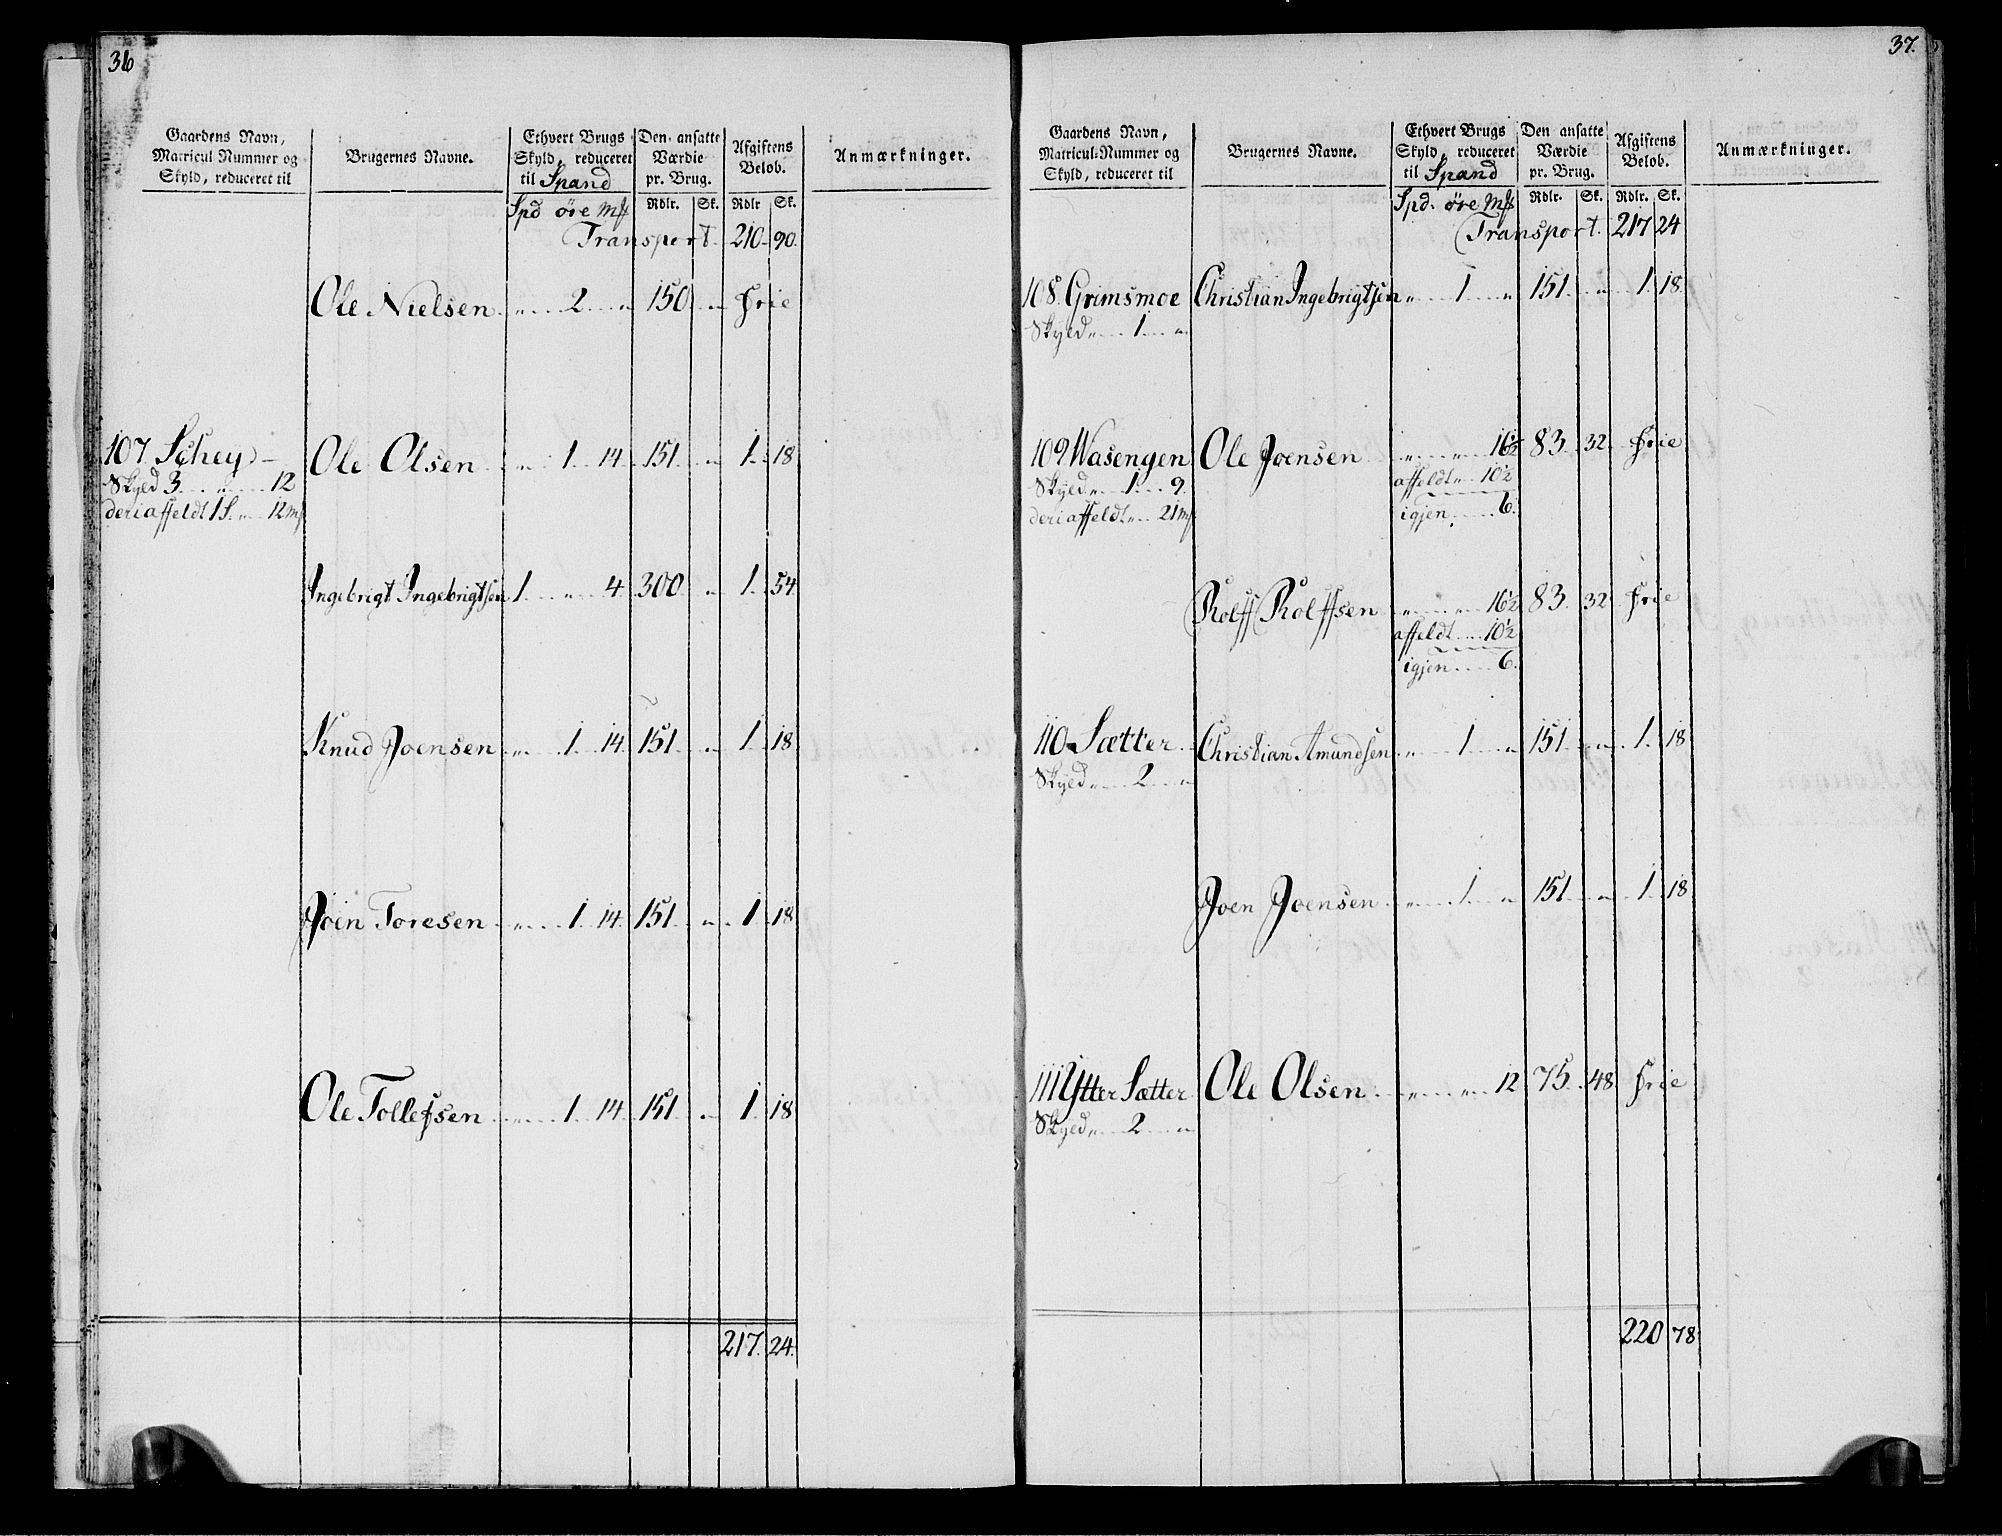 36
Gaardens Navn, Matricul Nummer og Skyld, reduceret til | Brugernes Navne. | Ethvert Brugs Skyld, reduceret til Spand | Den ansatte Værdie pr. Brug. | Afgiftens Beløb. | Anmærkninger.
Spd øre Mk | Rdlr. | Sk. | Rdlr | Sk.
Transport. 210. 90.
Ole Nielsen " 2 " 150 " Frie
107 Schey Ole Olsen " 1 14 151 " 1 18
Skyld 3 " 12
deri affeldt 1 S. " 12 mk
Ingebrigt Ingebrigtsen 1 " 4 300 " 1 54
Knud Joensen " 1 14 151 " 1 18
Joen Toresen " 1 14 151 " 1 18
Ole Tollefsen " 1 14 151 " 1 18
217. 24.
37.
Gaardens Navn, Matricul-Nummer og Skyld, reduceret til | Brugernes Navne. | Ethvert Brugs Skyld, reduceret til Spand | Den ansatte Værdie pr. Brug. | Afgiftens Beløb. | Anmærkninger.
Spd. øre Mk | Rdlr. | Sk. | Rdlr. | Sk.
Transport. 217 24
108. Grimsmoe Christian Ingebrigtsen " 1 " 151 " 1 18
Skyld " 1 "
109 Wasengen Ole Joensen " " 16½ 83 32 Frie
Skyld " 1 9. affeldt " 10½
deri affeldt " 21 mk igjen 6.
Rolff Rolffsen " " 16½ 83 32 Frie
affeldt 10½
igjen 6.
110 Sætter Christian Amundsen " 1 " 151 " 1 18
Skyld " 2 "
Joen Joensen " 1 " 151 " 1 18
111 Ytter Sætter Ole Olsen " " 12 75 48 Frie
Skyld " 2 "
220 78